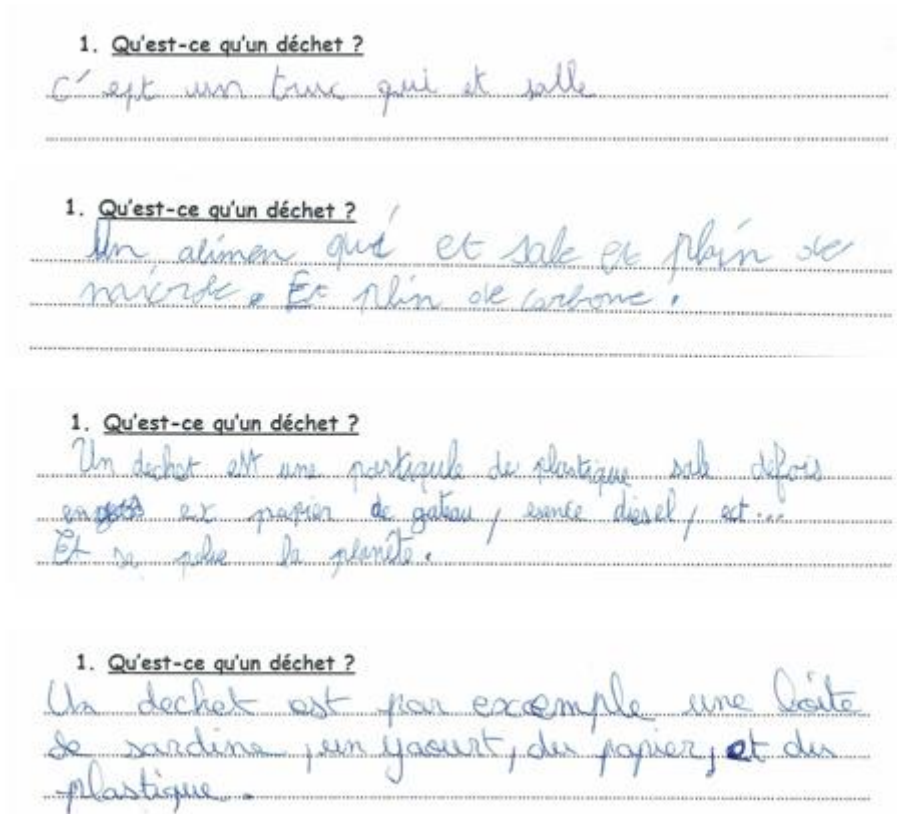 1. Qu'est-ce qu'un déchet ?
C'est un truc qui et salle
1. Qu'est-ce qu'un déchet ?
Un alimen qui et sale et plain de
microbe. Et plin de carbone.
1. Qu'est-ce qu'un déchet ?
Un dechet est une partiqule de plastique sale defois
papier de gateau, esence diesel, ect...
Et se polue la planète.
1. Qu'est-ce qu'un déchet ?
Un dechet est par excemple une boite
de sardine, un yaourt, du papier, et du
plastique.